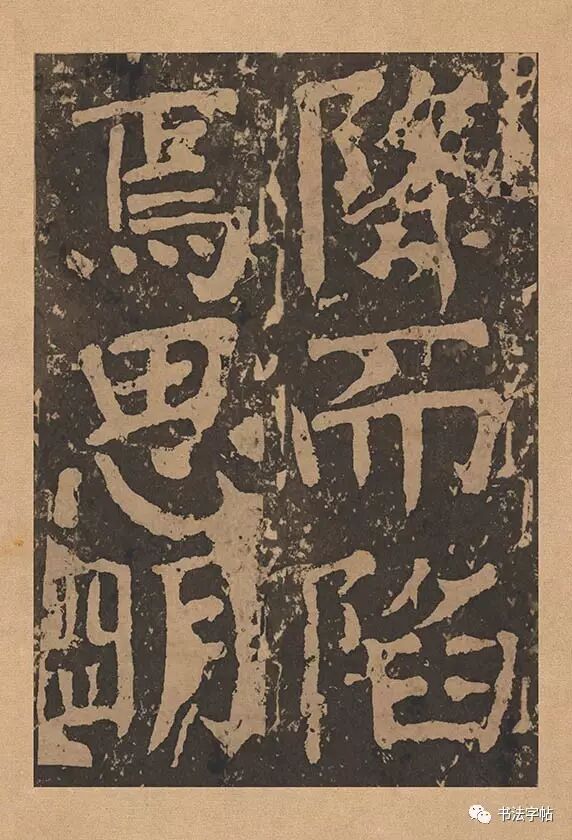 降而陷
焉思明
书法字帖